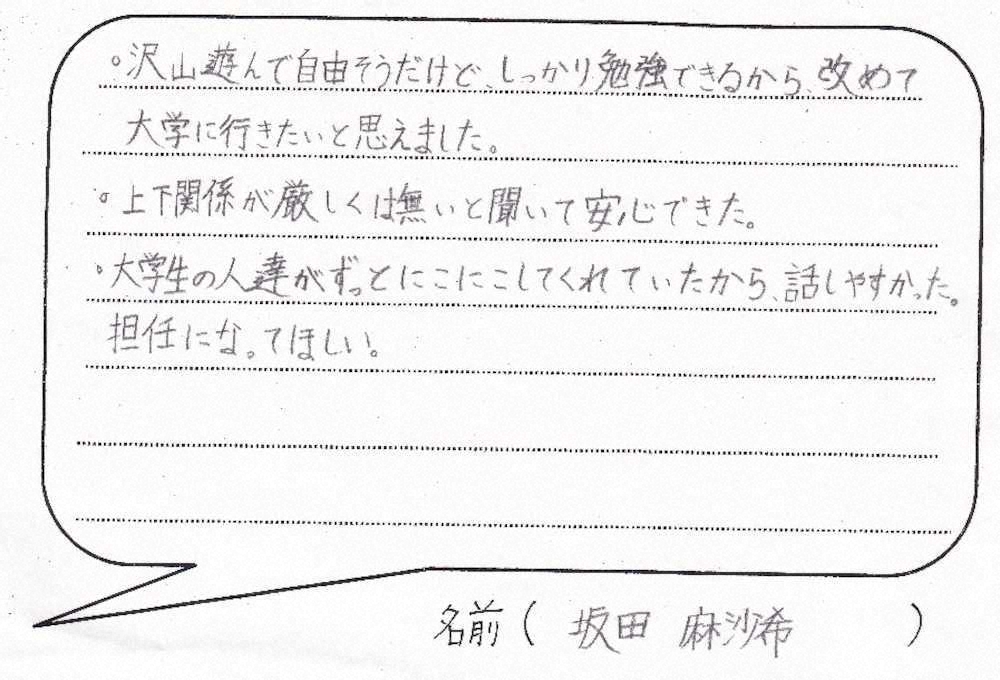 。沢山遊んで自由そうだけど、しっかり勉強できるから、改めて
大学に行きたいと思えました。
。上下関係が厳しくは無いと聞いて安心できた。
。大学生の人達がずっとにこにこしてくれていたから、話しやすかった。
担任になってほしい。
名前（ 坂田 麻沙希 ）